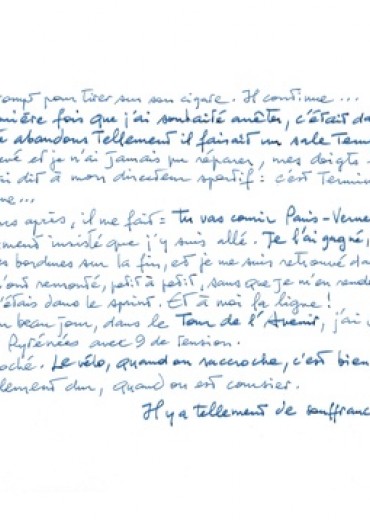 rompt pour tirer sur son cigare. Il continue ...
nière fois que j'ai souhaité arrêter, c'était da
é abandons tellement il faisait un sale tem
evé et je n'ai jamais pu réparer, mes doigts
ai dit à mon directeur sportif : c'est termin
ne...
rs après, il me fait = tu vas courir Paris-Verne
ement insisté que j'y suis allé. Je l'ai gagné,
es bordures sur la fin, et je me suis retrouvé da
m'ont remonté, petit à petit, sans que je m'en rende
'étais dans le sprint. Et à moi la ligne !
n beau jour, dans le Tour de l'Avenir, j'ai
Pyrénées avec 9 de tension.
oché. Le vélo, quand on raccroche, c'est bien
llement dur, quand on est coursier.
Il y a tellement de souffranc